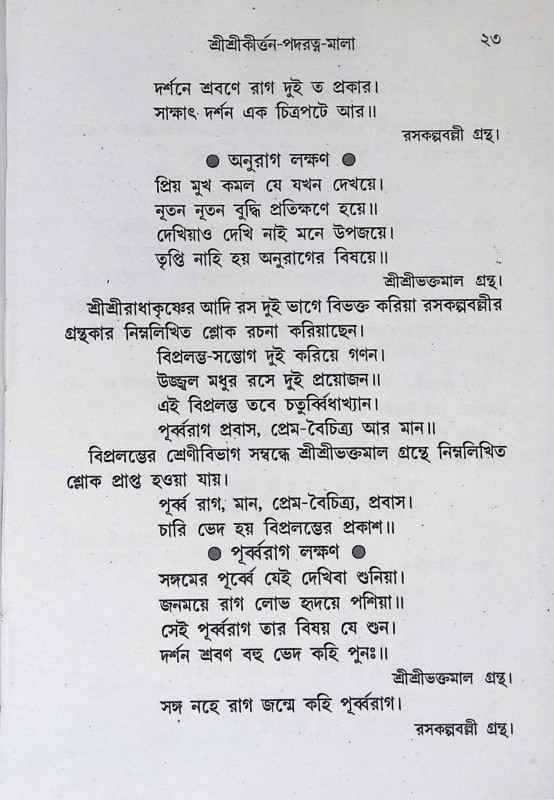 শ্রীশ্রীকীর্ত্তন-পদরত্ন-মালা ২৩
দর্শনে শ্রবণে রাগ দুই ত প্রকার।
সাক্ষাৎ দর্শন এক চিত্রপটে আর॥
রসকল্পবল্লী গ্রন্থ।
● অনুরাগ লক্ষণ ●
প্রিয় মুখ কমল যে যখন দেখয়ে।
নূতন নূতন বুদ্ধি প্রতিক্ষণে হয়ে॥
দেখিয়াও দেখি নাই মনে উপজয়ে।
তৃপ্তি নাহি হয় অনুরাগের বিষয়ে॥
শ্রীশ্রীভক্তমাল গ্রন্থ।
শ্রীশ্রীরাধাকৃষ্ণের আদি রস দুই ভাগে বিভক্ত করিয়া রসকল্পবল্লীর
গ্রন্থকার নিম্নলিখিত শ্লোক রচনা করিয়াছেন।
বিপ্রলম্ভ-সম্ভোগ দুই করিয়ে গণন।
উজ্জ্বল মধুর রসে দুই প্রয়োজন॥
এই বিপ্রলম্ভ তবে চতুর্ব্বিধাখ্যান।
পূর্ব্বরাগ প্রবাস, প্রেম-বৈচিত্র্য আর মান॥
বিপ্রলম্ভের শ্রেণীবিভাগ সম্বন্ধে শ্রীশ্রীভক্তমাল গ্রন্থে নিম্নলিখিত
শ্লোক প্রাপ্ত হওয়া যায়।
পূর্ব্ব রাগ, মান, প্রেম-বৈচিত্র্য, প্রবাস।
চারি ভেদ হয় বিপ্রলম্ভের প্রকাশ॥
● পূর্ব্বরাগ লক্ষণ ●
সঙ্গমের পূর্ব্বে যেই দেখিবা শুনিয়া।
জনময়ে রাগ লোভ হৃদয়ে পশিয়া॥
সেই পূর্ব্বরাগ তার বিষয় যে শুন।
দর্শন শ্রবণ বহু ভেদ কহি পুনঃ॥
শ্রীশ্রীভক্তমাল গ্রন্থ।
সঙ্গ নহে রাগ জন্মে কহি পূর্ব্বরাগ।
রসকল্পবল্লী গ্রন্থ।